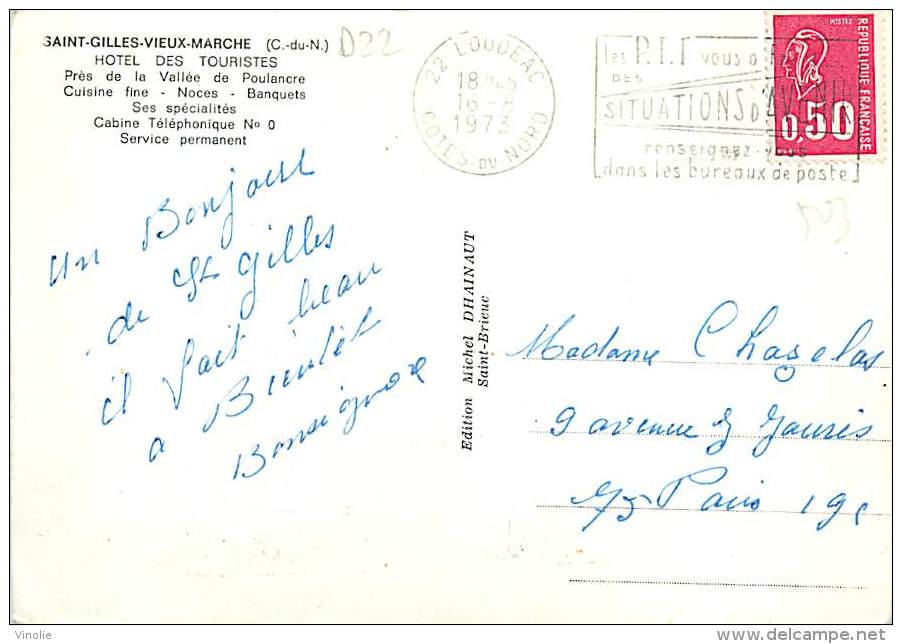 SAINT-GILLES-VIEUX-MARCHE (C.-du-N.)
HOTEL DES TOURISTES
Près de la Vallée de Poulancre
Cuisine fine - Noces - Banquets
Ses spécialités
Cabine Téléphonique No 0
Service permanent
D22
22 LOUDEAC
18H45
16-8
1973
COTES-DU-NORD
les P.T.T vous o
DES
SITUATIONS D'AVENIR
renseignez-vous
dans les bureaux de poste
POSTES
0,50
REPUBLIQUE FRANÇAISE
un Bonjour
de St gilles
il fait beau
a Bientôt
Bonsignore
Edition Michel DHAINAUT
Saint-Brieuc
Madame Chazelas
9 avenue J Jaurès
75 Paris 19e
Vinolie
delcampe.net